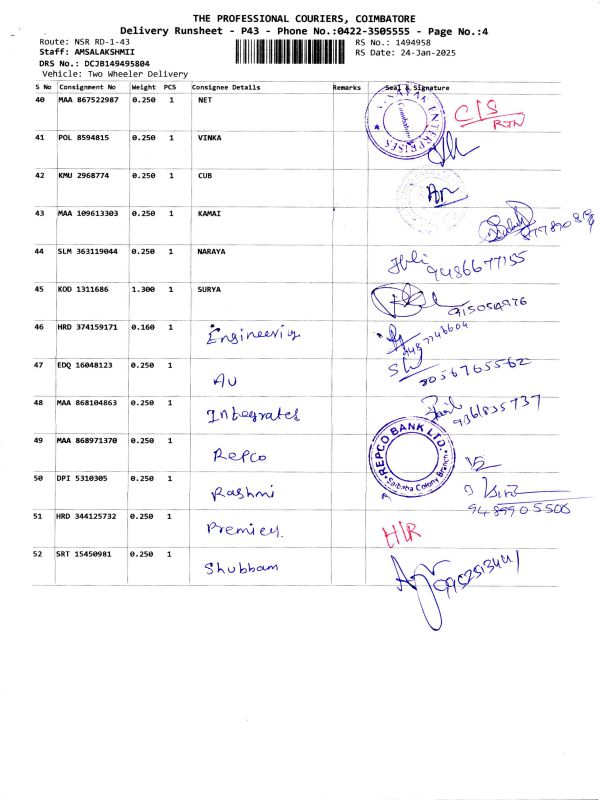 THE PROFESSIONAL COURIERS, COIMBATORE
Delivery Runsheet - P43 - Phone No.:0422-3505555 - Page No.:4
Route: NSR RD-1-43 RS No.: 1494958
Staff: AMSALAKSHMII RS Date: 24-Jan-2025
DRS No.: DCJB149495804
Vehicle: Two Wheeler Delivery
S No Consignment No Weight PCS Consignee Details Remarks Seal & Signature
40 MAA 867522987 0.250 1 NET C/S
RTN
ENTERPRISES
Coimbatore
41 POL 8594815 0.250 1 VINKA
42 KMU 2968774 0.250 1 CUB
43 MAA 109613303 0.250 1 KAMAI
44 SLM 363119044 0.250 1 NARAYA 9486677155
45 KOD 1311686 1.300 1 SURYA 915054976
46 HRD 374159171 0.160 1 Engineering 9487746604
47 EDQ 16048123 0.250 1 AU 8056765562
48 MAA 868104863 0.250 1 Integrates 9361835737
49 MAA 868971370 0.250 1 Repco REPCO BANK LTD.
Saibaba Colony Branch
50 DPI 5310305 0.250 1 Rashmi 9489905506
51 HRD 344125732 0.250 1 Premier. H/R
52 SRT 15450981 0.250 1 Shubham 9952513441